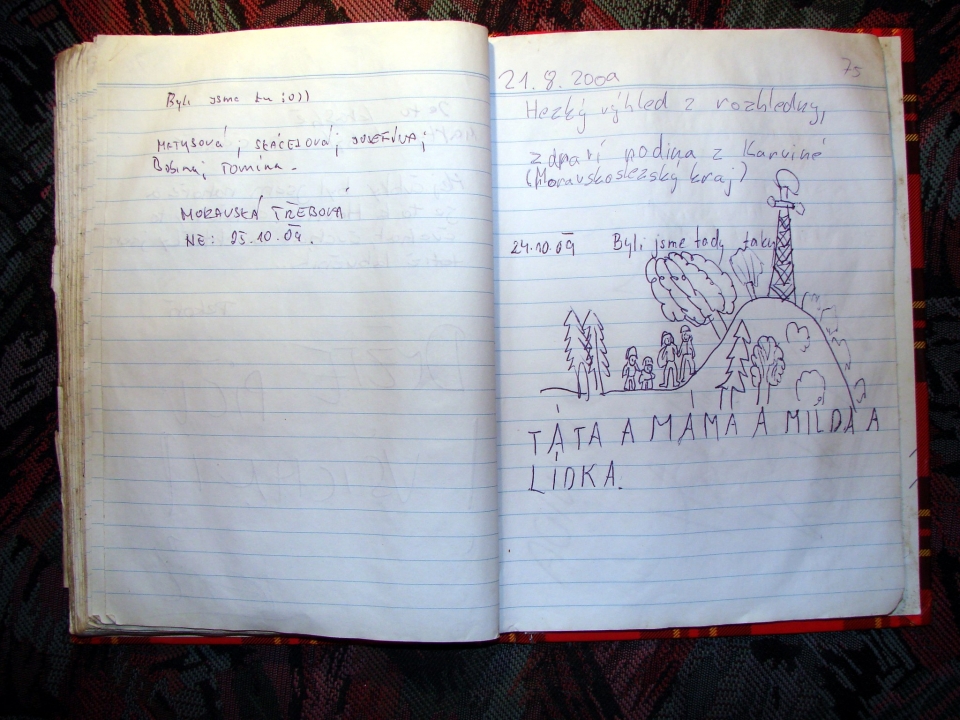 Byli jsme tu ;o))
MATYSOVÁ; SKÁCELOVÁ; JOSEFÍNA;
Bobina; Tomína.
MORAVSKÁ TŘEBOVÁ
NE: 05.10.09.
75
21. 8. 2009
Hezký výhled z rozhledny,
zdraví rodina z Karviné
(Moravskoslezský kraj)
24.10.09 Byli jsme tady taky
TÁTA A MÁMA A MILDA A
LÍDKA.